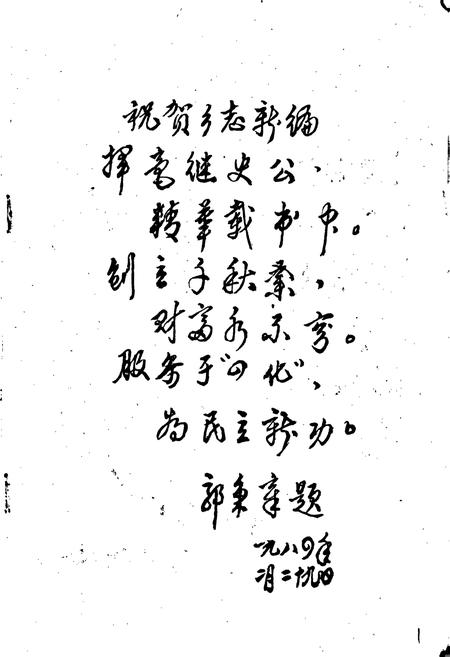 祝贺乡志新编
挥毫继史公，
精华载书中。
创立千秋业，
财富永不穷。
服务于“四化”，
为民立新功。
郭秉章题
一九八四年
二月二十九日
1